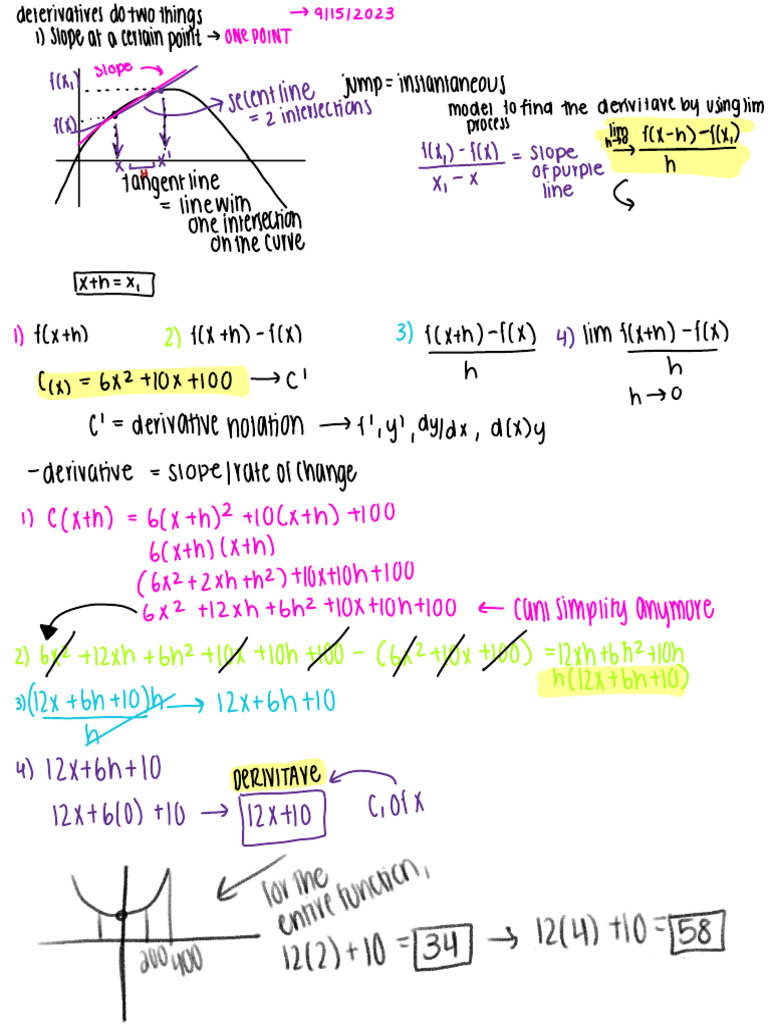 deterivatives do two things → 9/15/2023
1) Slope at a certain point → ONE POINT
slope →
f(x₁)
f(x)
secent line
= 2 intersections
x x¹
H
tangent line
= line with
one intersection
on the curve
jump = instantaneous
model to find the derivitave by using lim
process
f(x₁) - f(x) / x₁ - x = slope
of purple
line
lim h→0 f(x-h) - f(x₁) / h
x+h = x₁
1) f(x+h) 2) f(x+h) - f(x) 3) f(x+h) - f(x) / h 4) lim f(x+h) - f(x) / h
h → 0
C(x) = 6x² + 10x + 100 → C'
C' = derivative notation → f', y', dy/dx, d(x)y
- derivative = slope/rate of change
1) C(x+h) = 6(x+h)² + 10(x+h) + 100
6(x+h)(x+h)
(6x² + 2xh + h²) + 10x + 10h + 100
6x² + 12xh + 6h² + 10x + 10h + 100 ← cant simplify anymore
2) 6x² + 12xh + 6h² + 10x + 10h + 100 - (6x² + 10x + 100) = 12xh + 6h² + 10h
h(12x + 6h + 10)
3) (12x + 6h + 10)h / h → 12x + 6h + 10
4) 12x + 6h + 10
DERIVITAVE
12x + 6(0) + 10 → 12x + 10
C, of x
for the
entire function,
200 400
12(2) + 10 = 34 → 12(4) + 10 = 58